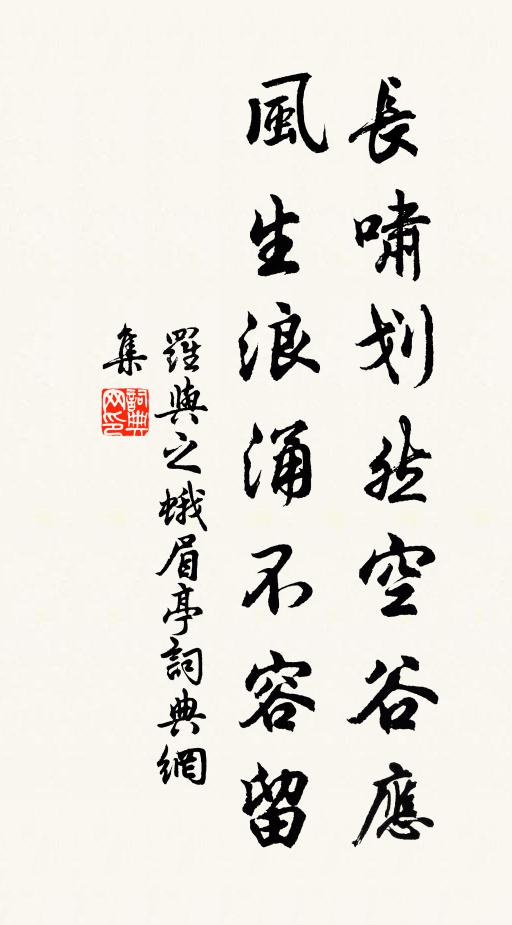 長嘯划然空谷應
風生浪涌不容留
羅與之蛾眉亭詞典網
集
詞典
网印